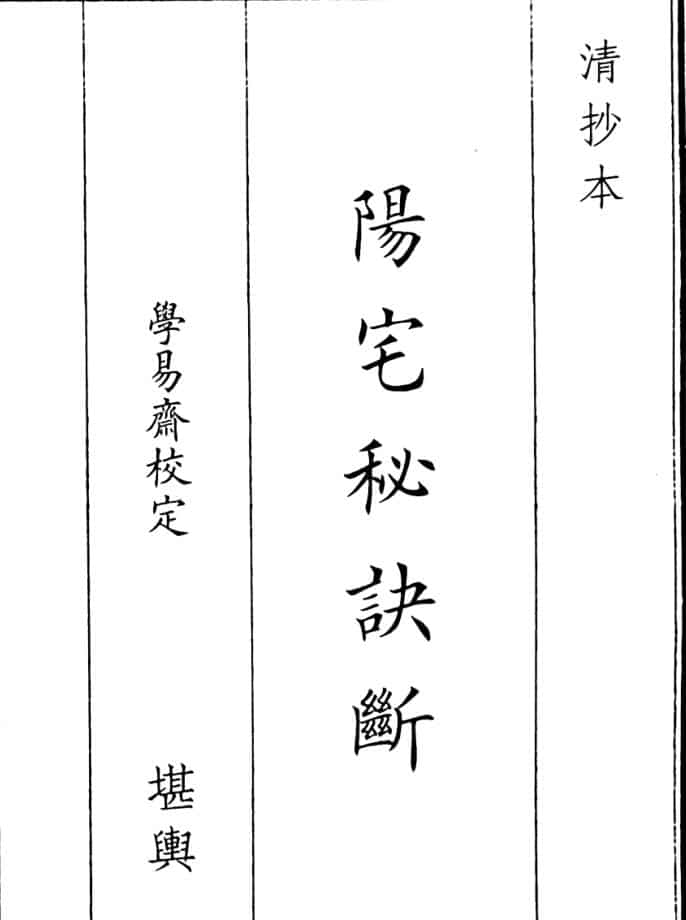 清抄本
陽宅秘訣斷
學易齋校定
堪輿